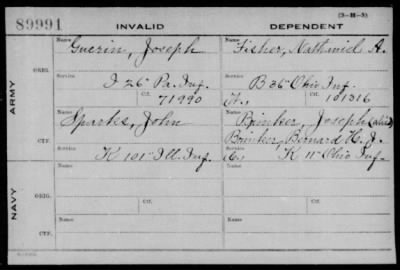 (3-H-3)
89991 INVALID DEPENDENT
Name Guerin, Joseph Name Fisher, Nathaniel A.
ORIG. Service I 26 Pa. Inf. Service B 36 Ohio Inf.
Ctf. 71990 Ctf. 101316
ARMY
Name Sparks, John Name Brinker, Joseph (alias)
Brinker, Bernard H. J.
CTF. Service K 101 Ill. Inf. K 11 Ohio Inf.
Name Name
ORIG. Service Ctf. Service Ctf.
NAVY
Name Name
CTF. Service Service